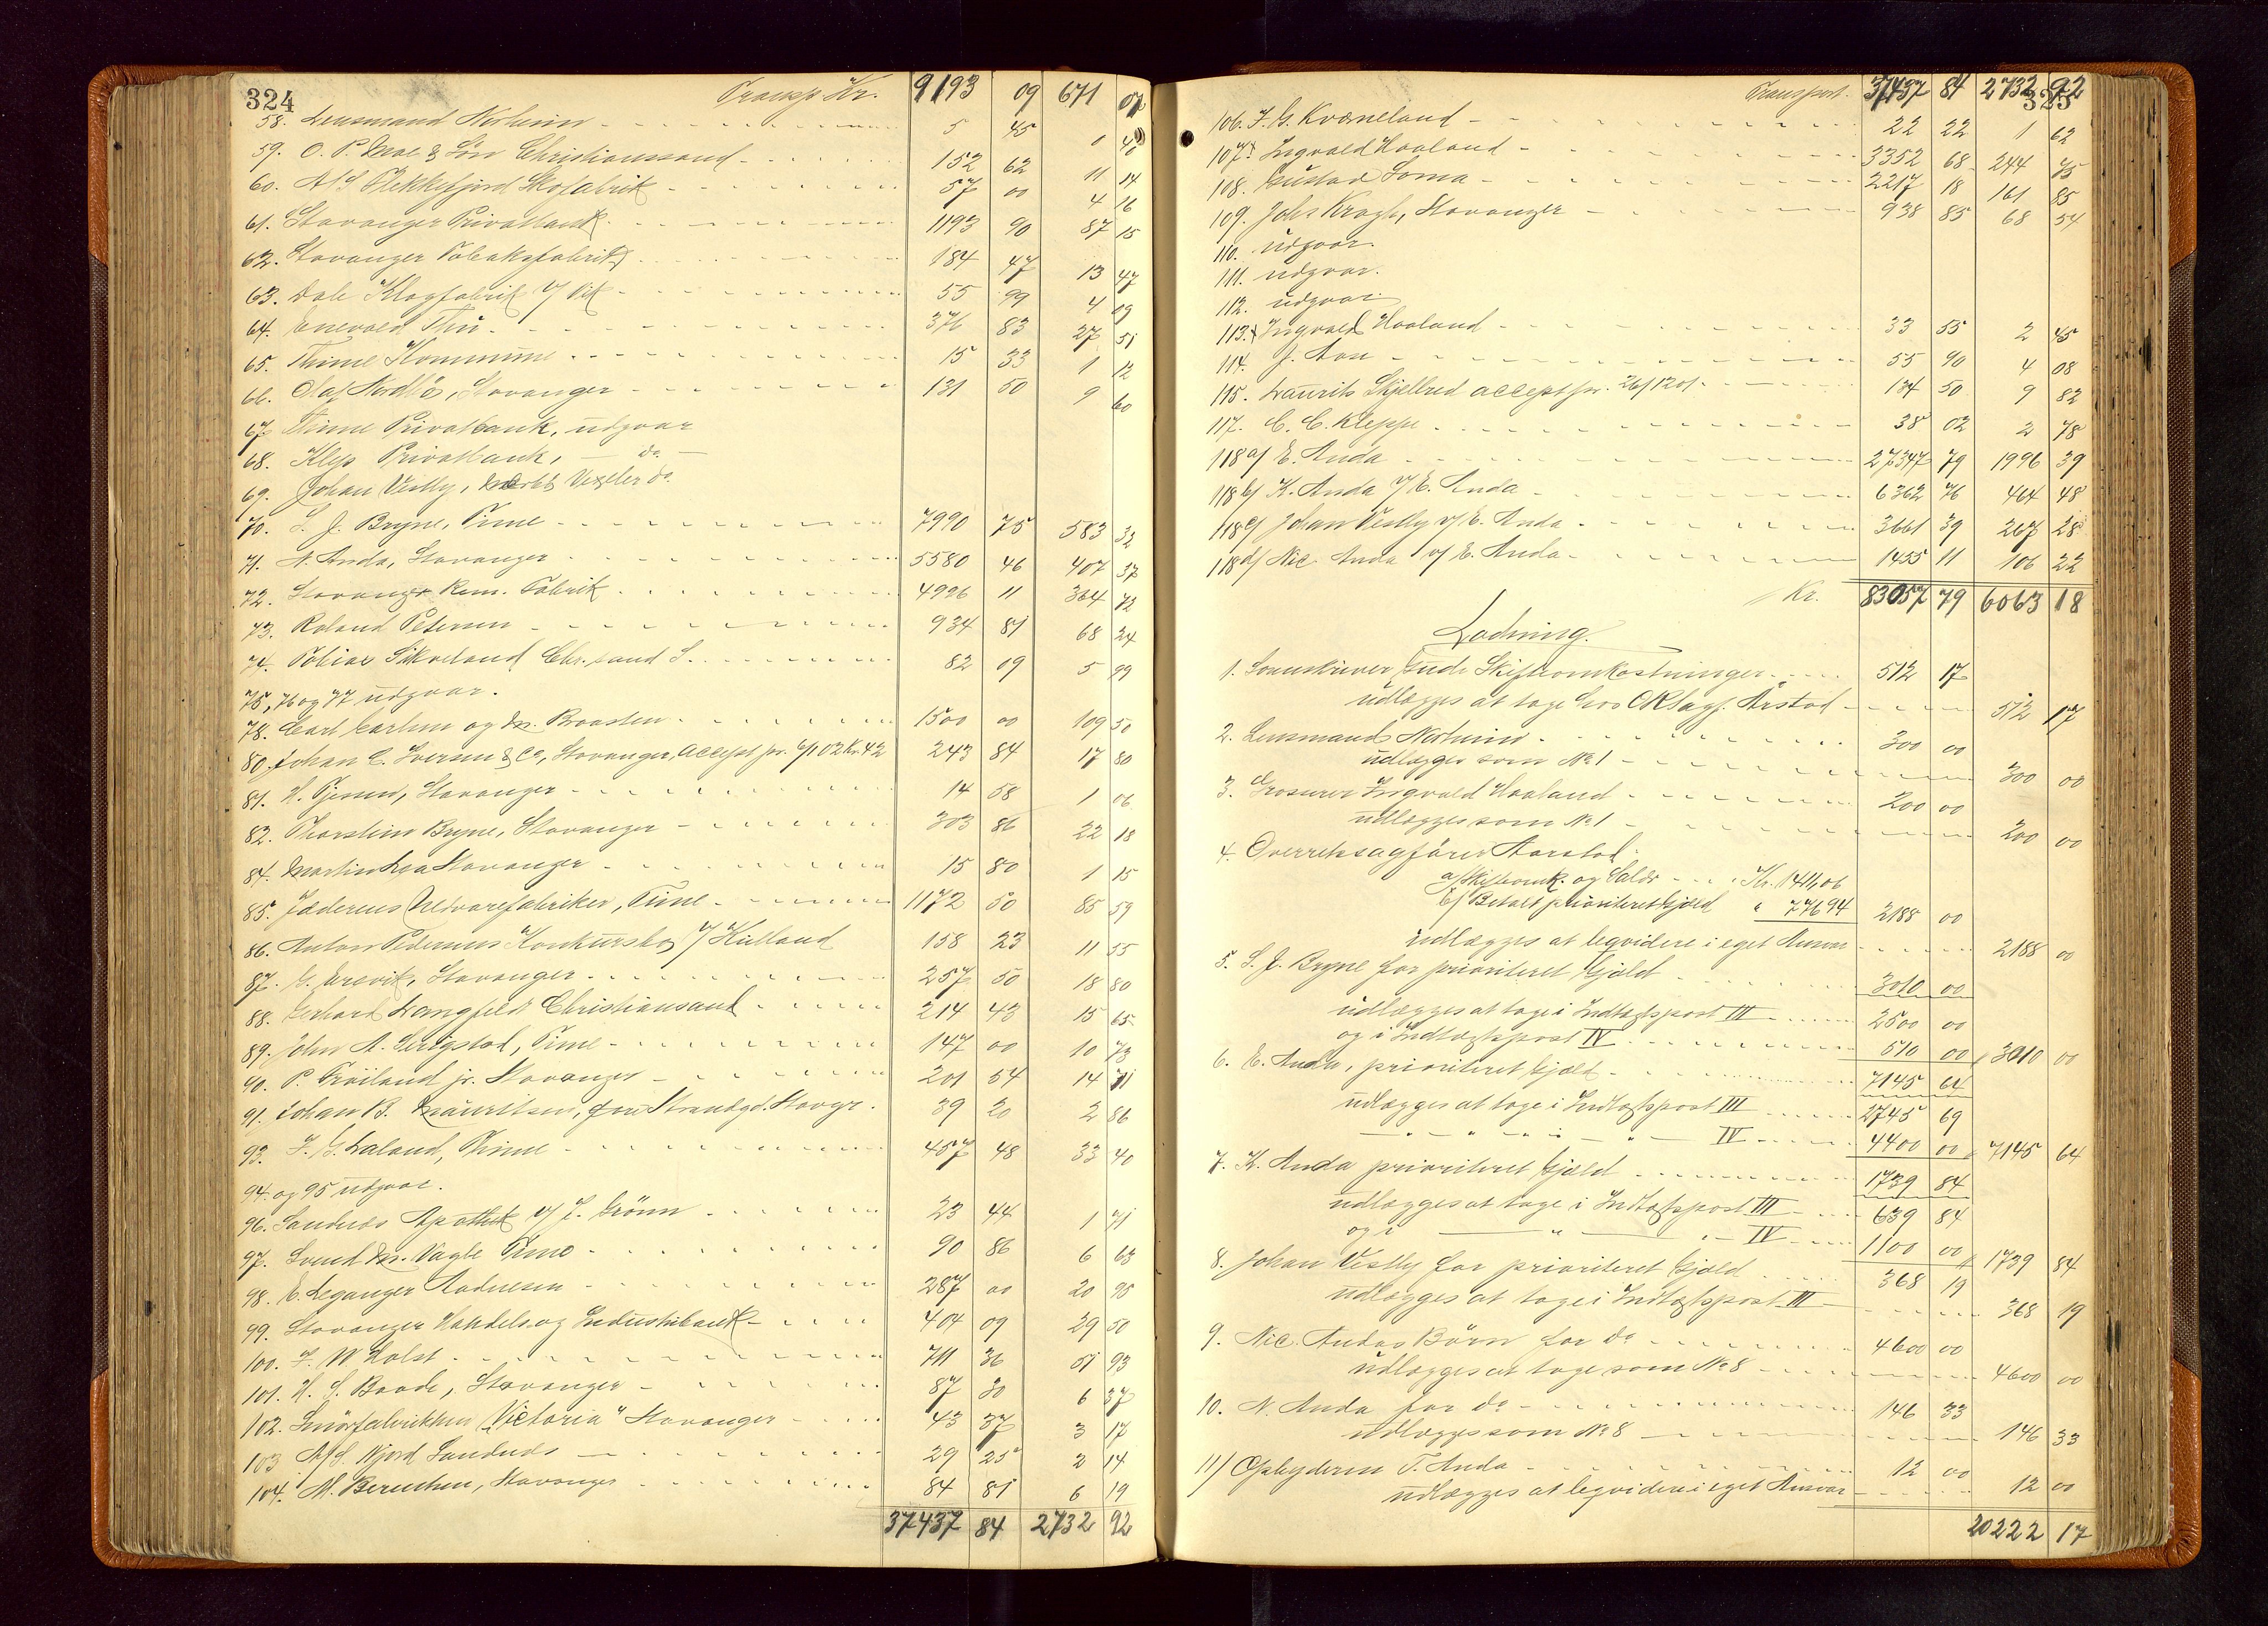 324
Transp Kr. 9193 09 671 07
58. Lensmand Nærheim 5 45 0 40
59. O. P. Moe & Søn Christianssand 152 62 11 14
60. A/S Flekkefjord Skofabrik 57 00 4 16
61. Stavanger Privatbank 1193 90 87 15
62. Stavanger Tobaksfabrik 184 47 13 47
63. Dale Klæfabrik v/ Vik 55 99 4 09
64. Enevald Thu 376 83 27 51
65. Thime Kommune 15 33 1 12
66. Olaf Nordbø, Stavanger 131 50 9 60
67. Thime Privatbank, udgaar
68. Klep Privatbank, — do —
69. Johan Vestly, Vexler do.
70. S. J. Bryne, Time 7990 75 583 32
71. N. Anda, Stavanger 5580 46 407 37
72. Stavanger Kem. Fabrik 4996 11 364 72
73. Roland Petersen 934 81 68 24
74. Tobias Sikveland Chr. sand S. 82 09 5 99
75, 76 og 77 udgaar.
78. Carl Carlsen og M. Braasten 1500 00 109 50
80. Johan C. Iversen & Co, Stavanger, accept pr. 6/1 02 Kr. 42 243 84 17 80
81. H. Tjensen, Stavanger 14 58 1 06
82. Thorstein Bryne, Stavanger 303 86 22 18
84. Martin Lea Stavanger 15 80 1 15
85. Jæderens Uldvarefabriker, Time 1172 50 85 59
86. Anton Pedersens Konkursbo v/ Hülland 158 23 11 55
87. G. Ersvik, Stavanger 257 50 18 80
88. Gerhard Langfeldt Christiansand 214 43 15 65
89. John A. Serigstad, Time 147 00 10 73
90. P. Frøiland jr. Stavanger 201 54 14 71
91. Johan B. Mauritsen, Strandgd. Stavgr. 39 20 2 86
93. F. G. Laland, Thime 457 48 33 40
94. og 95 udgaar.
96. Sandnæs Apothek v/ J. Grönn 23 44 1 71
97. Svend M. Vagle Time 90 86 6 63
98. E. Leganger Andresen 287 00 20 95
99. Stavanger Handels og Industribank 404 09 29 50
100. F. W. Holst 711 36 51 93
101. H. S. Baade, Stavanger 87 20 6 37
102. Smørfabrikken "Victoria" Stavanger 43 37 3 17
103 A/S Njord Sandnæs 29 25 2 14
104. M. Berentsen, Stavanger 84 81 6 19
37437 84 2732 92
325
Transport 37437 84 2732 92
106. F. G. Kvæneland 22 22 1 62
107. Ingvald Haaland 3352 68 244 75
108. Gustav Soma 2217 18 161 85
109. Johs Kragh, Stavanger 938 85 68 54
110. udgaar.
111. udgaar.
112. udgaar.
113. Ingvald Haaland 33 55 2 45
114. J. Aase 55 90 4 08
115. Laurits Skjellred accept pr. 26/12 01. 134 50 9 82
117. C. C. Kleppe 38 02 2 78
118 a/ E. Anda 27347 79 1996 39
118 b/ K. Anda v/ E. Anda 6362 76 464 48
118 c/ Johan Vestly v/ E. Anda 3661 39 267 28
118 d/ Nic. Anda v/ E. Anda 1455 11 106 22
Kr. 83057 79 6063 18
Lodning.
1. Sorenskriver Gude Skifteomkostninger 512 17
udlægges at tage hos O R Sagf. Årstad 512 17
2. Lensmand Nærheim 300 00
udlægges som No 1 300 00
3. Grosserer Ingvald Haaland 200 00
udlægges som No 1 200 00
4. Overretssagfører Aarstad
a/ Skifteomk. og Salær Kr. 1411,06
b/ Betalt prioriteret Gjæld " 776 94 2188 00
udlægges at leqvidere i eget Ansvar 2188 00
5. S. J. Bryne for prioriteret Gjæld 3010 00
udlægges at tage i Indtægtspost III 2500 00
og i Indtægtspost IV 510 00 3010 00
6. E. Anda, prioriteret Gjæld 7145 64
udlægges at tage i Indtægtspost III 2745 69
— " — " — " — " — IV 4400 00 7145 64
7. K. Anda prioriteret Gjæld 1739 84
udlægges at tage i Indtægtspost III 639 84
og i — " — " — IV 1100 00 1739 84
8. Johan Vestly for prioriteret Gjæld 368 19
udlægges at tage i Indtægtspost III 368 19
9. Nic. Andas Børn for do 4600 00
udlægges at tage som No 8 4600 00
10. N. Anda for do 146 33
udlægges som No 8 146 33
11/ Opbyderen T. Anda 12 00
udlægges at leqvidere i eget Ansvar 12 00
20222 17